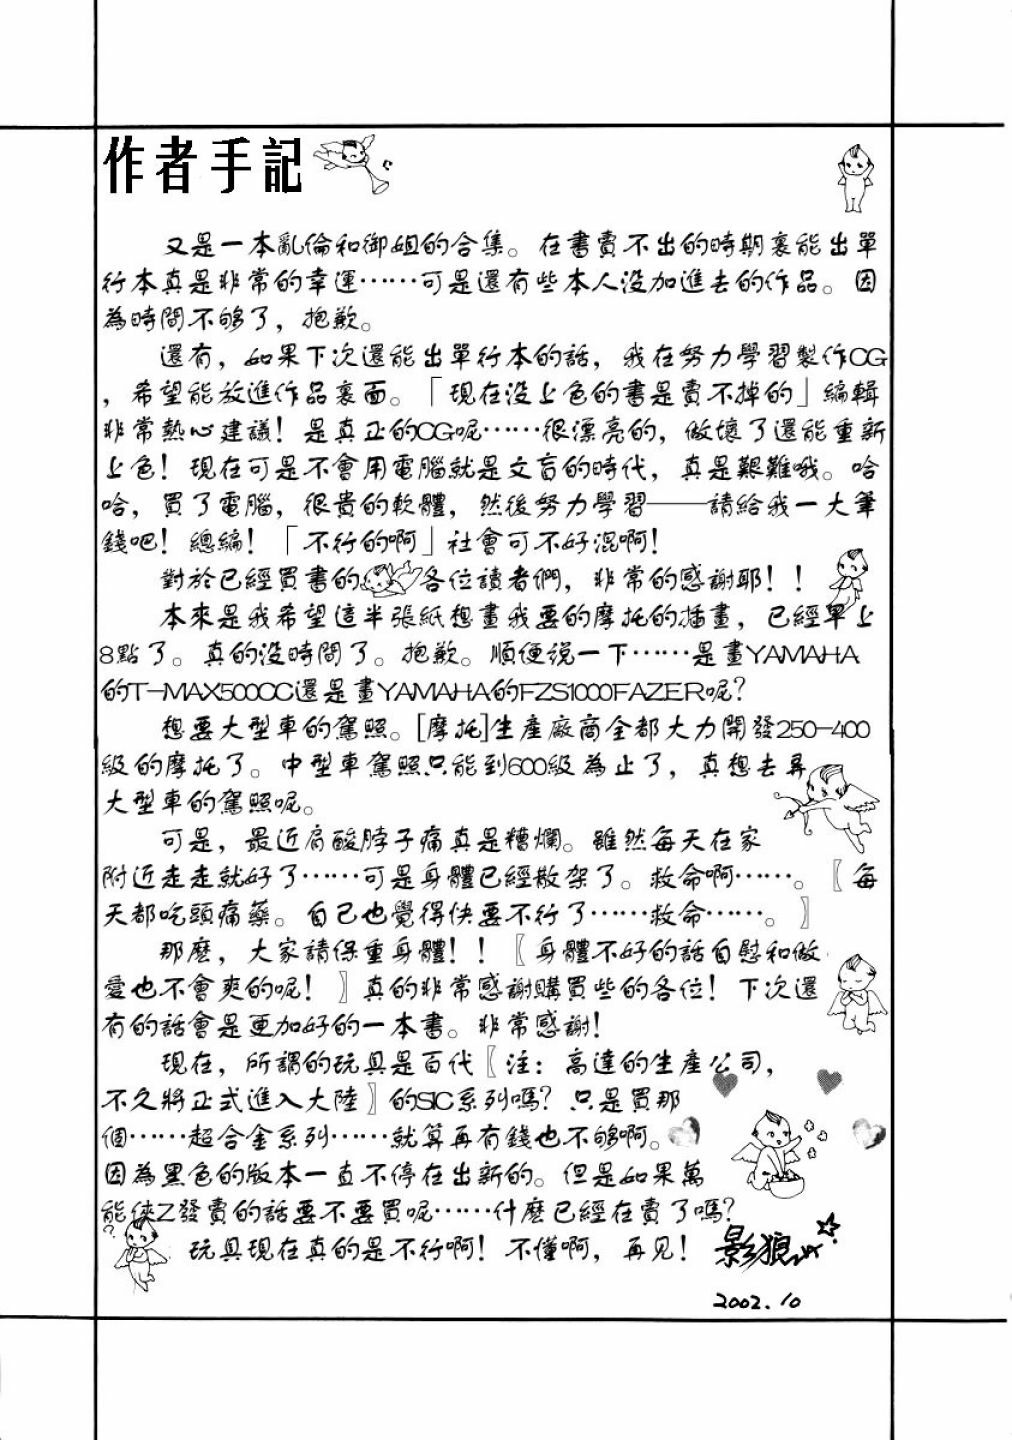 作者手記
又是一本亂倫和御姐的合集。在書賣不出的時期裏能出單
行本真是非常的幸運……可是還有些本人没加進去的作品。因
為時間不够了，抱歉。
還有，如果下次還能出單行本的話，我在努力學習製作CG
，希望能放進作品裏面。「現在没上色的書是賣不掉的」編輯
非常熱心建議！是真正的CG呢……很漂亮的，做壞了還能重新
上色！現在可是不會用電腦就是文盲的時代，真是艱難哦。哈
哈，買了電腦，很貴的軟體，然後努力學習——請給我一大筆
錢吧！總編！「不行的啊」社會可不好混啊！
對於已經買書的各位讀者們，非常的感謝耶！！
本來是我希望這半張紙想畫我要的摩托的插畫，已經早上
8點了。真的没時間了。抱歉。順便说一下……是畫YAMAHA
的T-MAX500CC還是畫YAMAHA的FZS1000FAZER呢？
想要大型車的駕照。[摩托]生產廠商全都大力開發250-400
級的摩托了。中型車駕照只能到600級為止了，真想去弄
大型車的駕照呢。
可是，最近肩酸脖子痛真是糟爛。雖然每天在家
附近走走就好了……可是身體已經散架了。救命啊……。〖每
天都吃頭痛藥。自己也覺得快要不行了……救命……。〗
那麽，大家請保重身體！！〖身體不好的話自慰和做
愛也不會爽的呢！〗真的非常感謝購買些的各位！下次還
有的話會是更加好的一本書。非常感謝！
現在，所謂的玩具是百代〖注：高達的生產公司，
不久將正式進入大陸〗的SIC系列嗎？只是買那
個……超合金系列……就算再有錢也不够啊。
因為黑色的版本一直不停在出新的。但是如果萬
能侠Z發賣的話要不要買呢……什麽已經在賣了嗎？
玩具現在真的是不行啊！不懂啊，再见！影狼
2002.10